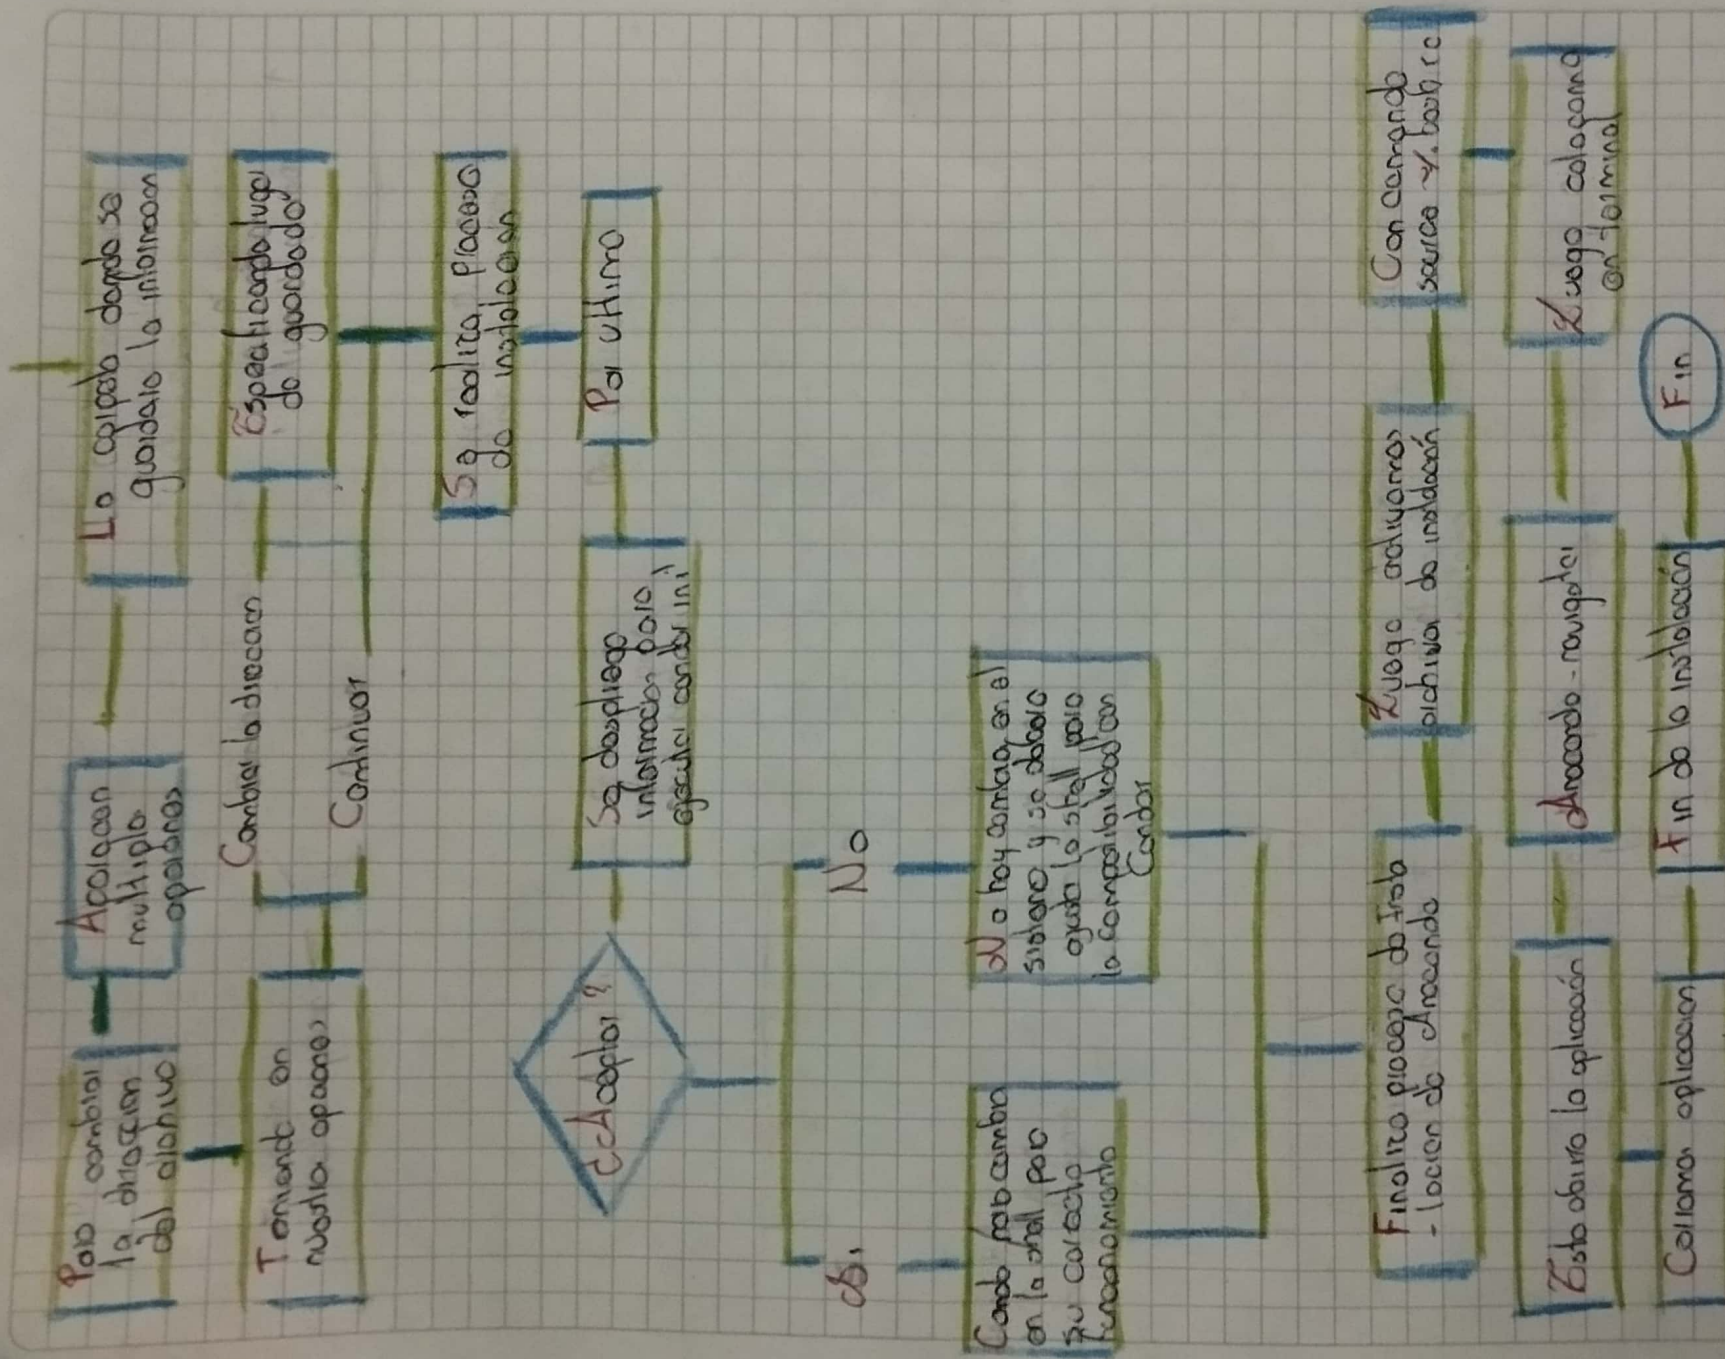 La carpeta donde se
guardara la informacion
Aparecen
multiple
opciones
Para cambiar
la direccion
del archivo
Teniendo en
nuestra opciones
Cambiar la direccion
Continuar
Especificando lugar
de guardado
Se realiza proceso
de instalacion
Por ultimo
Se despliega
informacion para
ejecutar conda init
¿Aceptar?
Si
No
Conda hara cambio
en la shell para
su correcto
funcionamiento
No hay cambios en el
sistema y se debera
ajustar la shell para
la compatibilidad con
Conda
Finaliza proceso de Insta
-lacion de Anaconda
Luego activamos
archivos de instalación
Con comando
source ~/.bashrc
Luego colocamos
en terminal
Anaconda-navigator
Esto abrira la aplicación
Cerramos aplicacion
Fin de la instalación
Fin